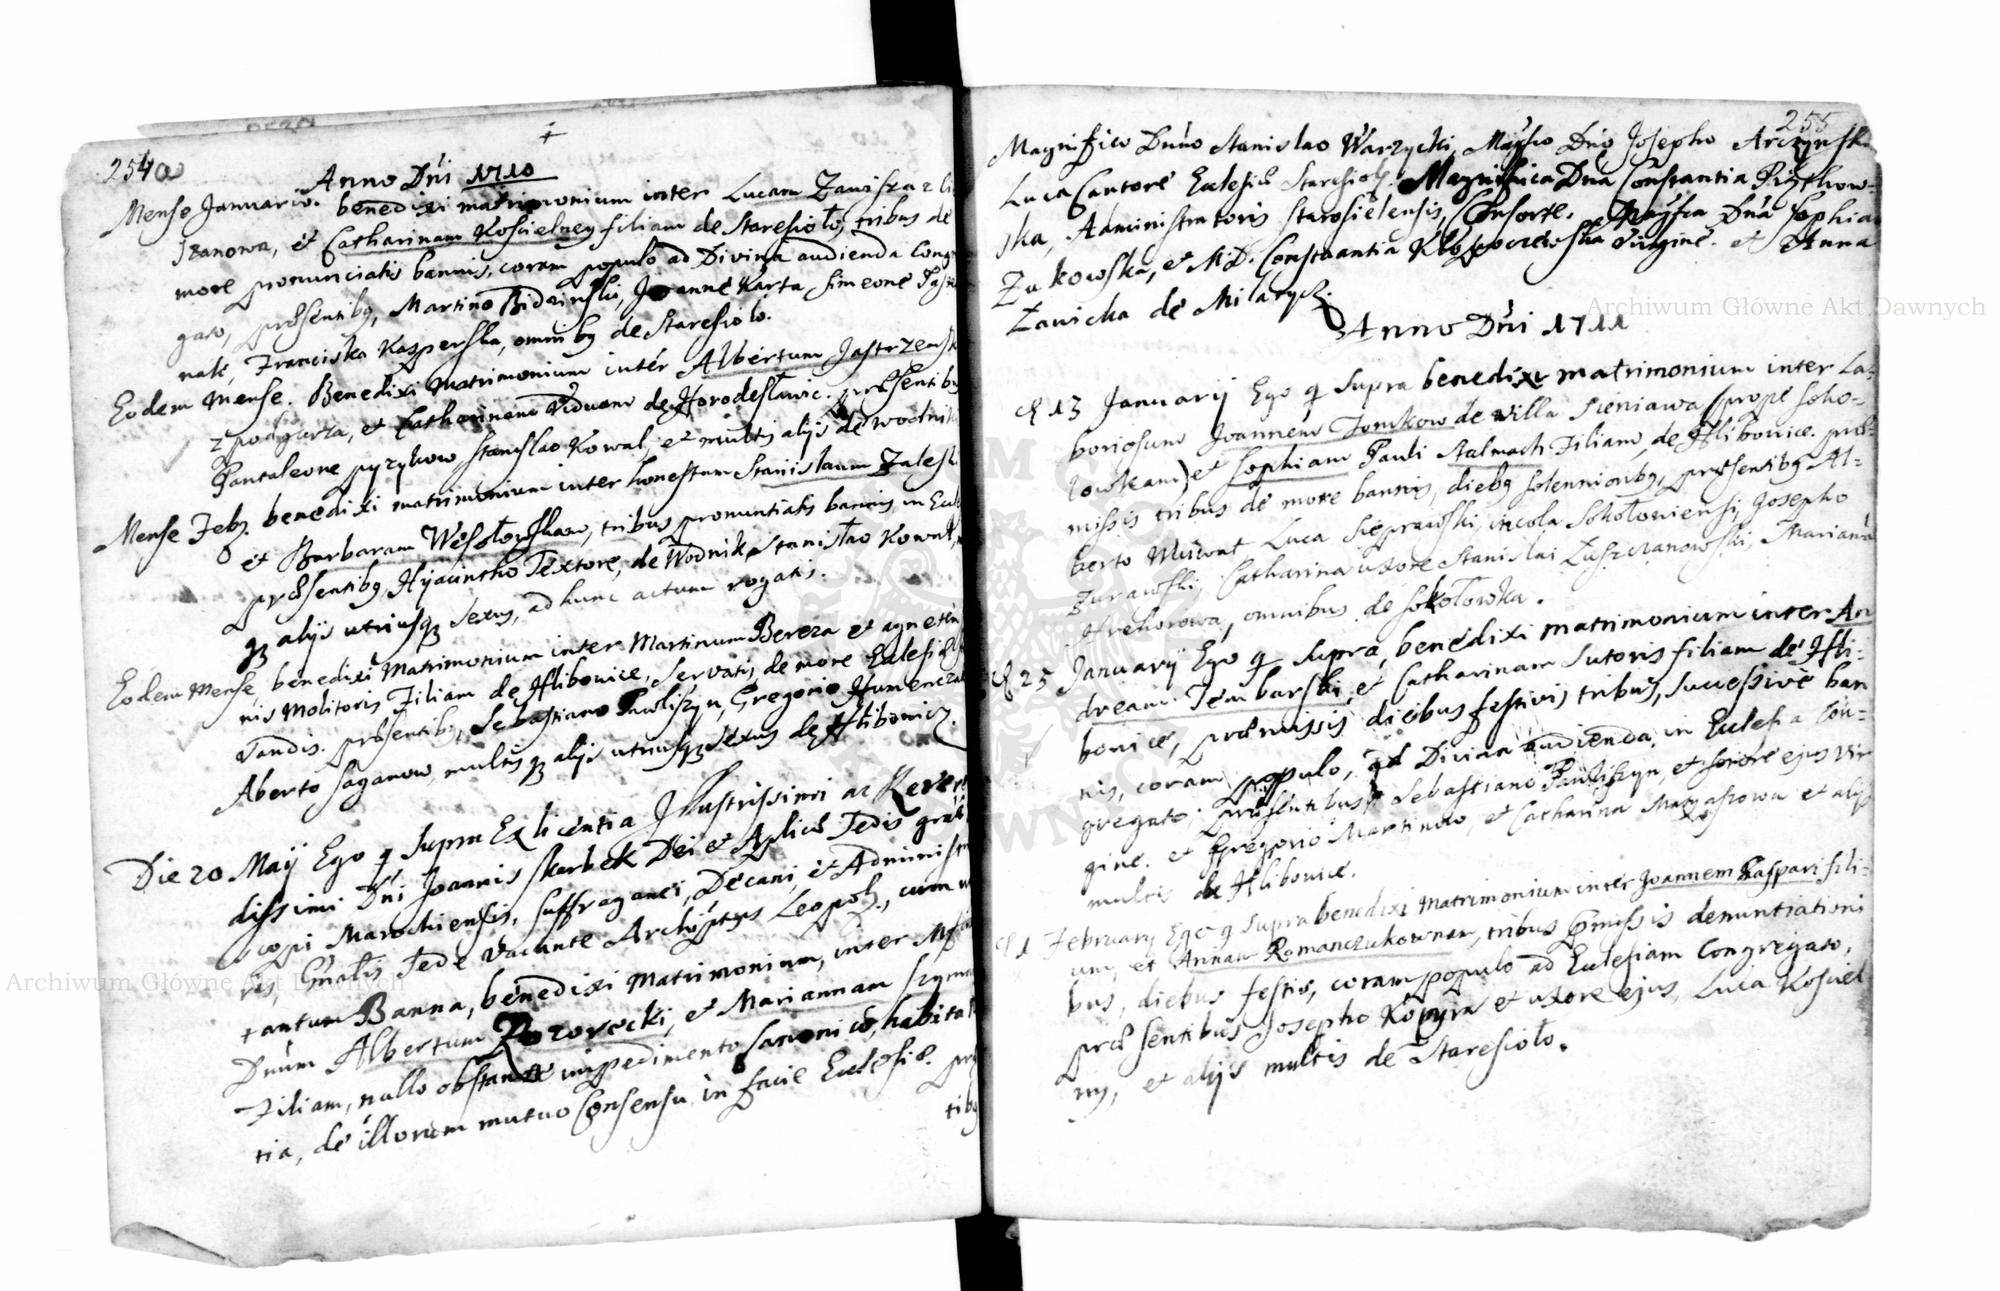 254
Anno Dni 1710
Mense Januario. benedixi matrimonium inter Lucam Zawisza
Iwanowa, et Catharinam Kościelney filiam de Staresioło, tribus de
more pronunciatis bannis, coram populo ad Divina audienda Congre
gato, præsentibg, Martino Bidzinski, Joanne Karta, Simeone
nak, Franciska Kasperska, omnibg de Staresioło.
Eodem Mense. Benedixi Matrimonium inter Albertum Jastrzemsk
z podgorza, et Catharinam Viduam de Horodesławic. præsentibg
Pantaleone pyrykow, Stanislao Kowal, et multis alijs de Wodnik
Mense Febr. benedixi matrimonium inter honestum Stanislaum Zalesk
et Barbaram Wesołowskam, tribus pronuntiatis bannis in Eccl
præsentibg Hyacintho Textore, de Wodnik Stanisłao Kowal,
qz alijs utriusqz sexus, ad hunc actum rogatis.
Eodem Mense, benedixi Matrimonium inter Martinum Bereza et agnetem
nis Molitoris Filiam de Hlibowice, servatis de more Ecclesiæ
vandis. præsentibg, Sebastiano Pawliszyn, Gregorio
Aberto Saganow, multis qz alijs utriusqz sexus de Hlibowicz.
Die 20 Maij Ego q supra Ex licentia Illustrissimi ac Rever
dissimi Dni Joannis Skarbek Dei et Aplicæ Sedis grati
scopi Marochiensis, Suffraganei, Decani, et Administra
ris, Gnalis, Sede vacante Archiptus Leopol., cum
tantum Banna, benedixi Matrimonium, inter
Dnum Albertum Rozorecki, et Mariannam Szyma
Filiam, nullo obstante impedimento Canonico, habita
tia, de illorum mutuo Consensu in facie Ecclesiæ. præ
tibg
255
Magnifico Dno Stanislao Warzycki, Magfco Dno Josepho Arczynski
Luca Cantore Ecclesiæ Staresiol. Magnifica Dna Constantia Przychow=
ska, Administratoris Starosielensis, Consorte. Magfca Dna Sophia
Zukowska, et M.D. Constantia Kłopocrewska Virgine. et Anna
Zawicka de Milatycz.
Anno Dni 1711
d 13 Januarij Ego q supra benedixi matrimonium inter La-
boriosum Joannem Tomkow de villa Sieniawa (prope Soko=
łowkam) et Sophiam Pauli Stalmach Filiam, de Hlibowice. præ=
missis tribus de more bannis, diebg solennionbg, præsentibg Al=
berto Muiwał, Luca Sieprawski, incola Sokołowiensi, Josepho
Zurawski, Catharina uxore Stanislai Łuszczanowski, Mariana
Hrehorowa, omnibus de Sokołowka.
d 25 Januarij Ego q supra, benedixi matrimonium inter An
dream Tembarski, et Catharinam Sutoris filiam de Hli=
bowice, præmissis diebus festivis tribus, successive ban
nis, coram populo, ad Divina audienda, in Ecclesia Con=
gregato, præsentibus, Sebastiano Pauliszyn, et sorore ejus vir
gine. et Gregorio Martinow, et Catharina Matyaszowa et alijs
multis de Hlibowice.
d 1 February Ego q supra benedixi Matrimonium inter Joannem Kaspari fili=
um, et Annam Romanczukownam, tribus præmissis denuntiationi
bus, diebus festis, coram populo ad Ecclesiam Congregato,
præsentibus Josepho Kopyra et uxore ejus, Luca Kosciel
ny, et alijs multis de Staresioło.
Archiwum Główne Akt Dawnych
Archiwum Główne Akt Dawnych